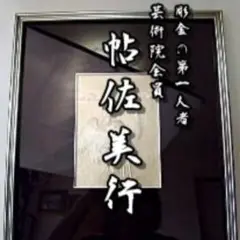 彫金の第一人者
芸術院会員
帖佐美行